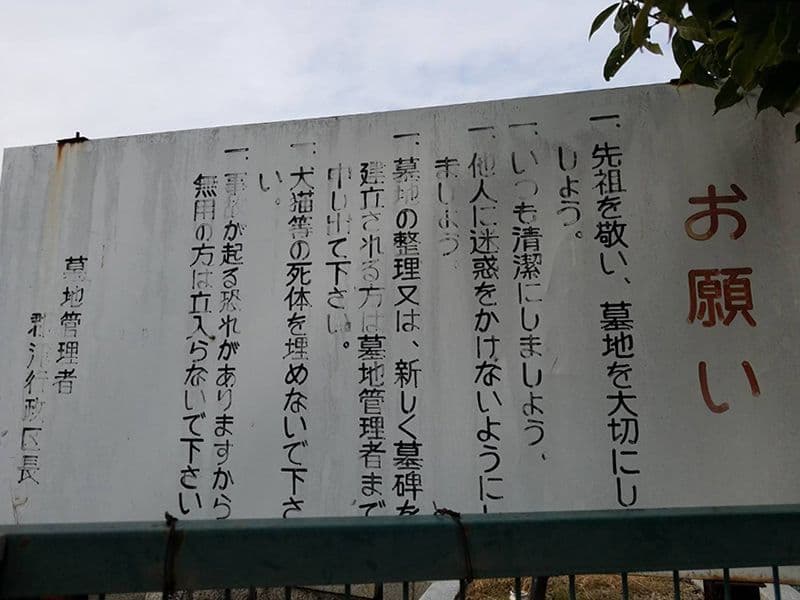 お願い
一、先祖を敬い、墓地を大切にし
しょう。
一、いつも清潔にしましょう、
一、他人に迷惑をかけないように
ましょう
一、墓地の整理又は、新しく墓碑を
建立される方は墓地管理者まで
申し出て下さい。
一、犬猫等の死体を埋めないで下さ
い。
一、事故が起る恐れがありますから
無用の方は立入らないで下さい
墓地管理者
郡津行政区長